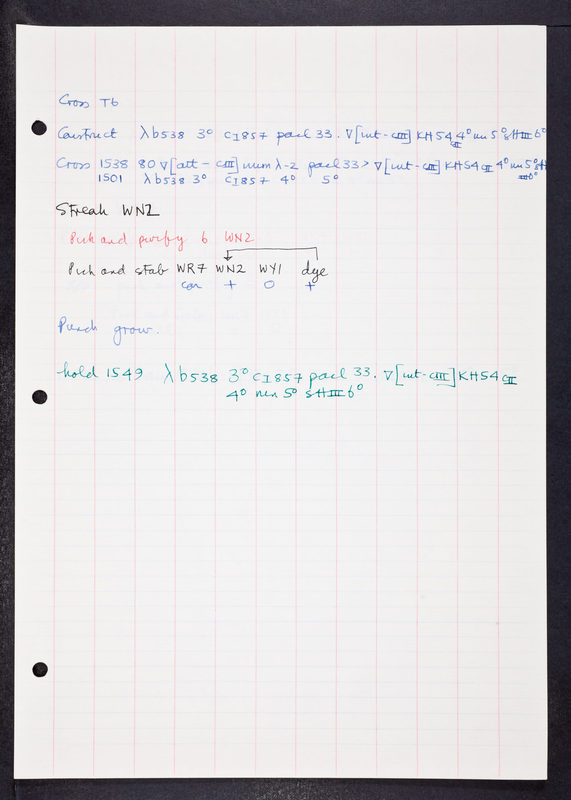 Cross T6
Construct λ b538 3° cI857 pael 33. ∇[int-cIII] KH54 cII 4° nin 5° SHIII 6°
Cross 1538 80 ∇[att - cIII] imm λ-2 pael 33 > ∇[int-cIII] KH54 cII 4° nin 5° SH
1501 λ b538 3° cI857 4° 5° III 6°
Streak WN2
Pick and purify 6 WN2
Pick and stab WR7 WN2 WY1 dye
con + 0 +
Punch grow.
hold 1549 λ b538 3° cI857 pael 33. ∇[int-cIII] KH54 cII
4° nin 5° SHIII 6°